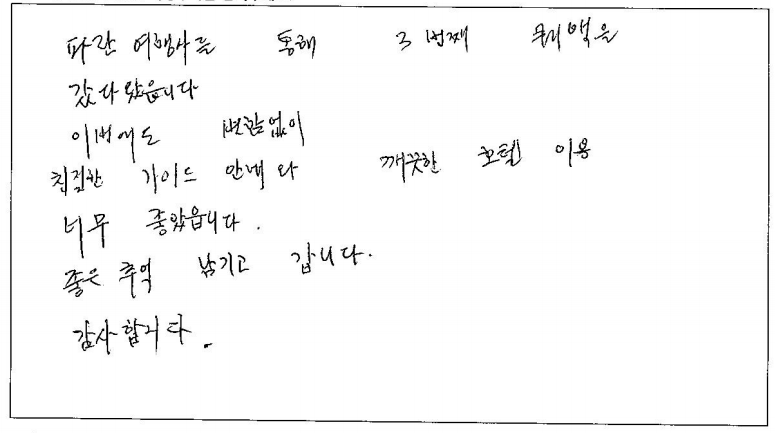 파란 여행사를 통해 3번째 퀘백을
갔다 왔읍니다
이번에도 변함없이
친절한 가이드 안내와 깨끗한 호텔 이용
너무 좋았읍니다.
좋은 추억 남기고 갑니다.
감사합니다.